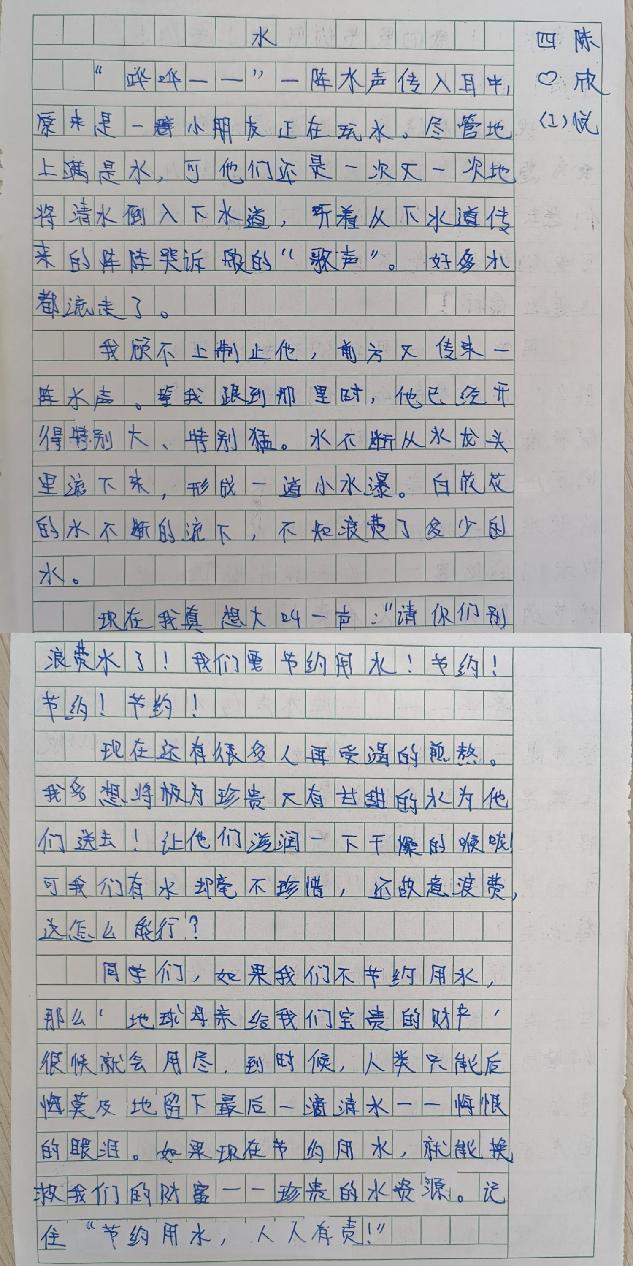 水
四 陈
♡ 欣
(1) 悦
“哗哗——”一阵水声传入耳中,
原来是一群小朋友正在玩水。尽管地
上满是水,可他们还是一次又一次地
将清水倒入下水道,听着从下水道传
来的阵阵哭诉般的“歌声”。好多水
都流走了。
我顾不上制止他,前方又传来一
阵水声。等我跟到那里时,他已经开
得特别大、特别猛。水不断从水龙头
里流下来,形成一道小水瀑。白花花
的水不断的流下,不知浪费了多少的
水。
现在我真想大叫一声:“请你们别
浪费水了!我们要节约用水!节约!
节约!节约!
现在还有很多人再受渴的煎熬。
我多想将极为珍贵又有甘甜的水为他
们送去!让他们滋润一下干燥的喉咙!
可我们有水却毫不珍惜,还故意浪费,
这怎么能行?
同学们,如果我们不节约用水,
那么‘地球母亲给我们宝贵的财产’
很快就会用尽,到时候,人类只能后
悔莫及地留下最后一滴清水——悔恨
的眼泪。如果现在节约用水,就能换
救我们的财富——珍贵的水资源。记
住“节约用水,人人有责!”